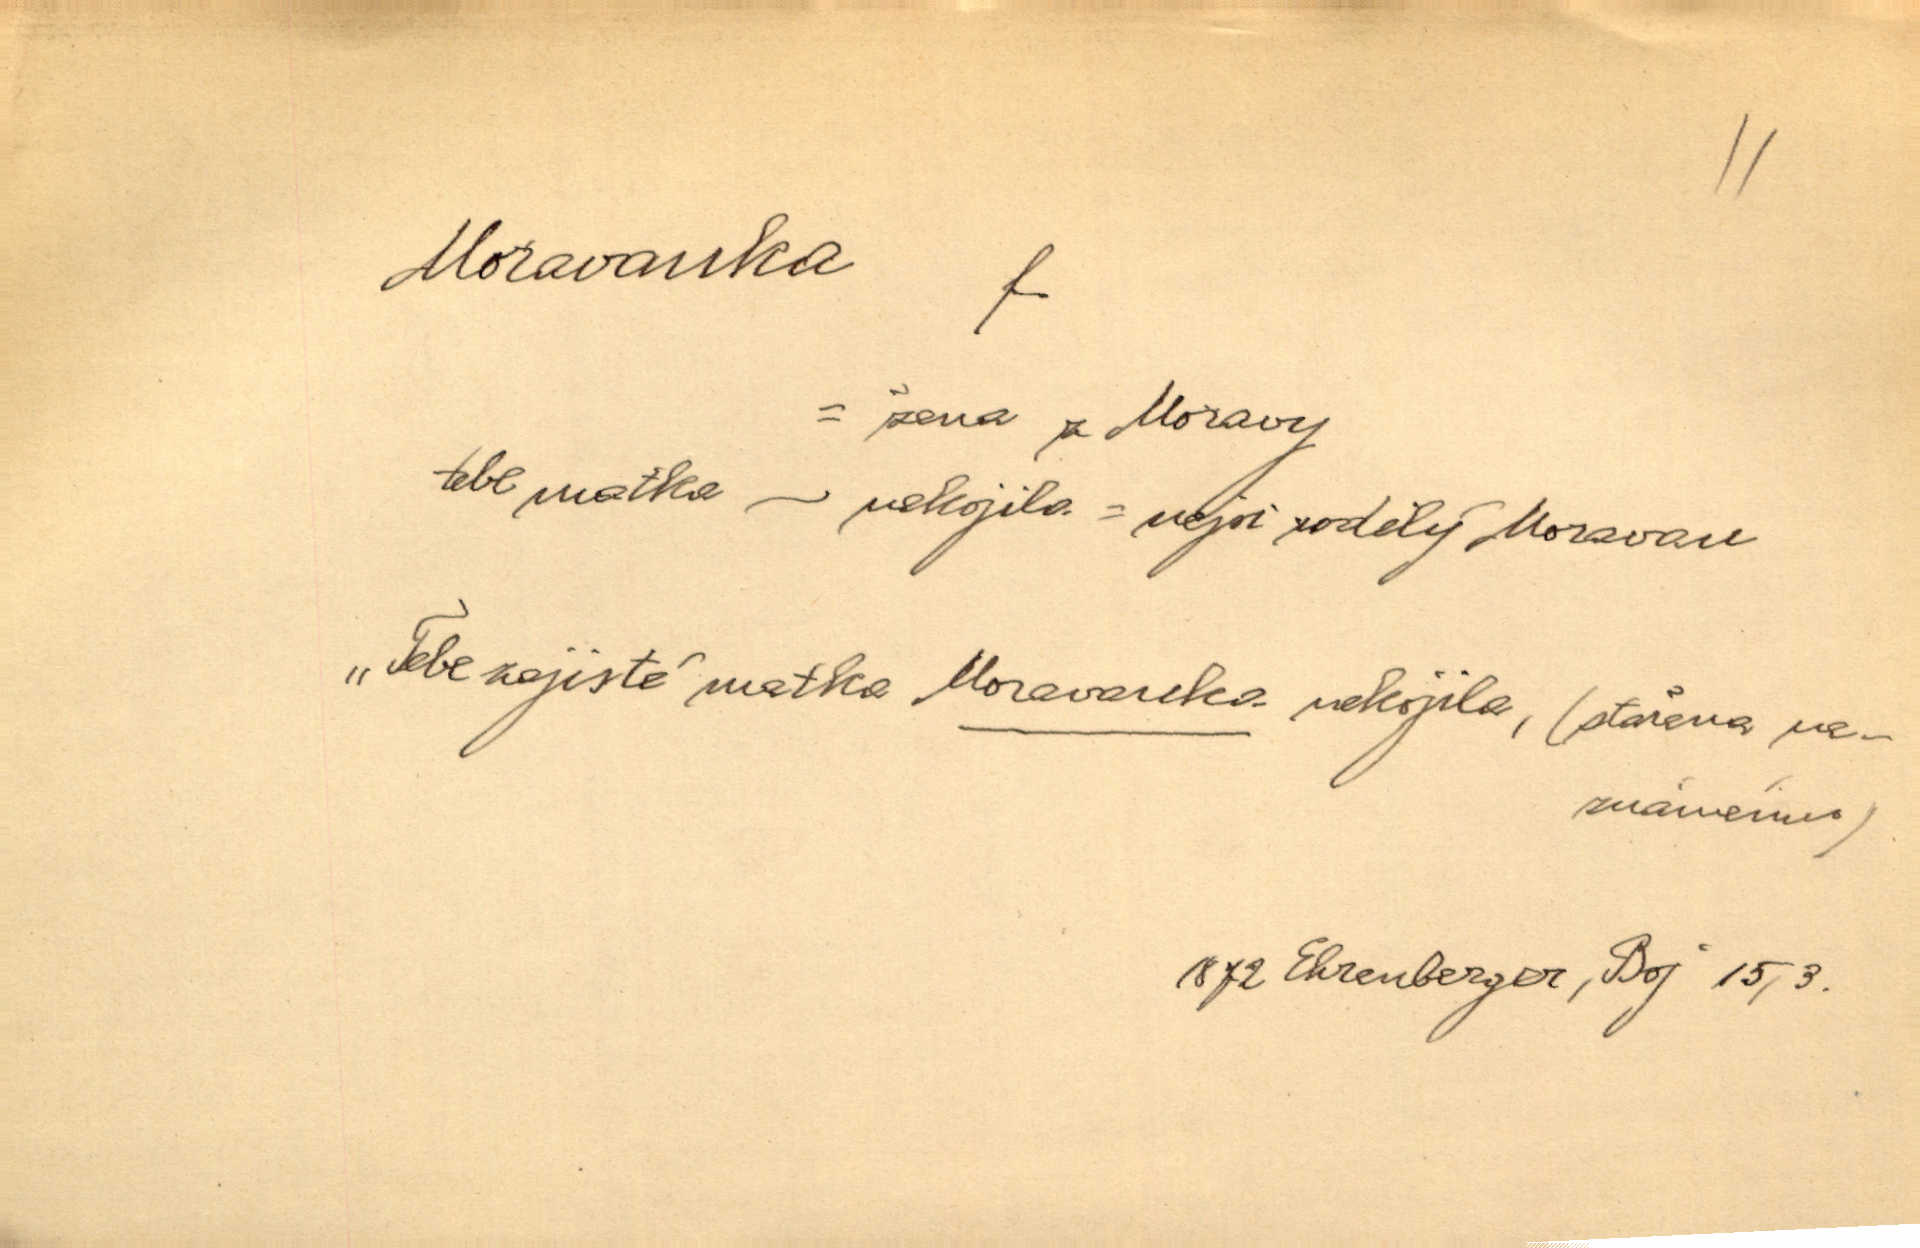 11
Moravanka f
= žena z Moravy
tebe matka ~ nekojila = nejsi rodilý Moravan
„Tebe zajisté matka Moravanka nekojila, (stařena ne-
známému)
1872 Ehrenberger, Boj 15, 3.